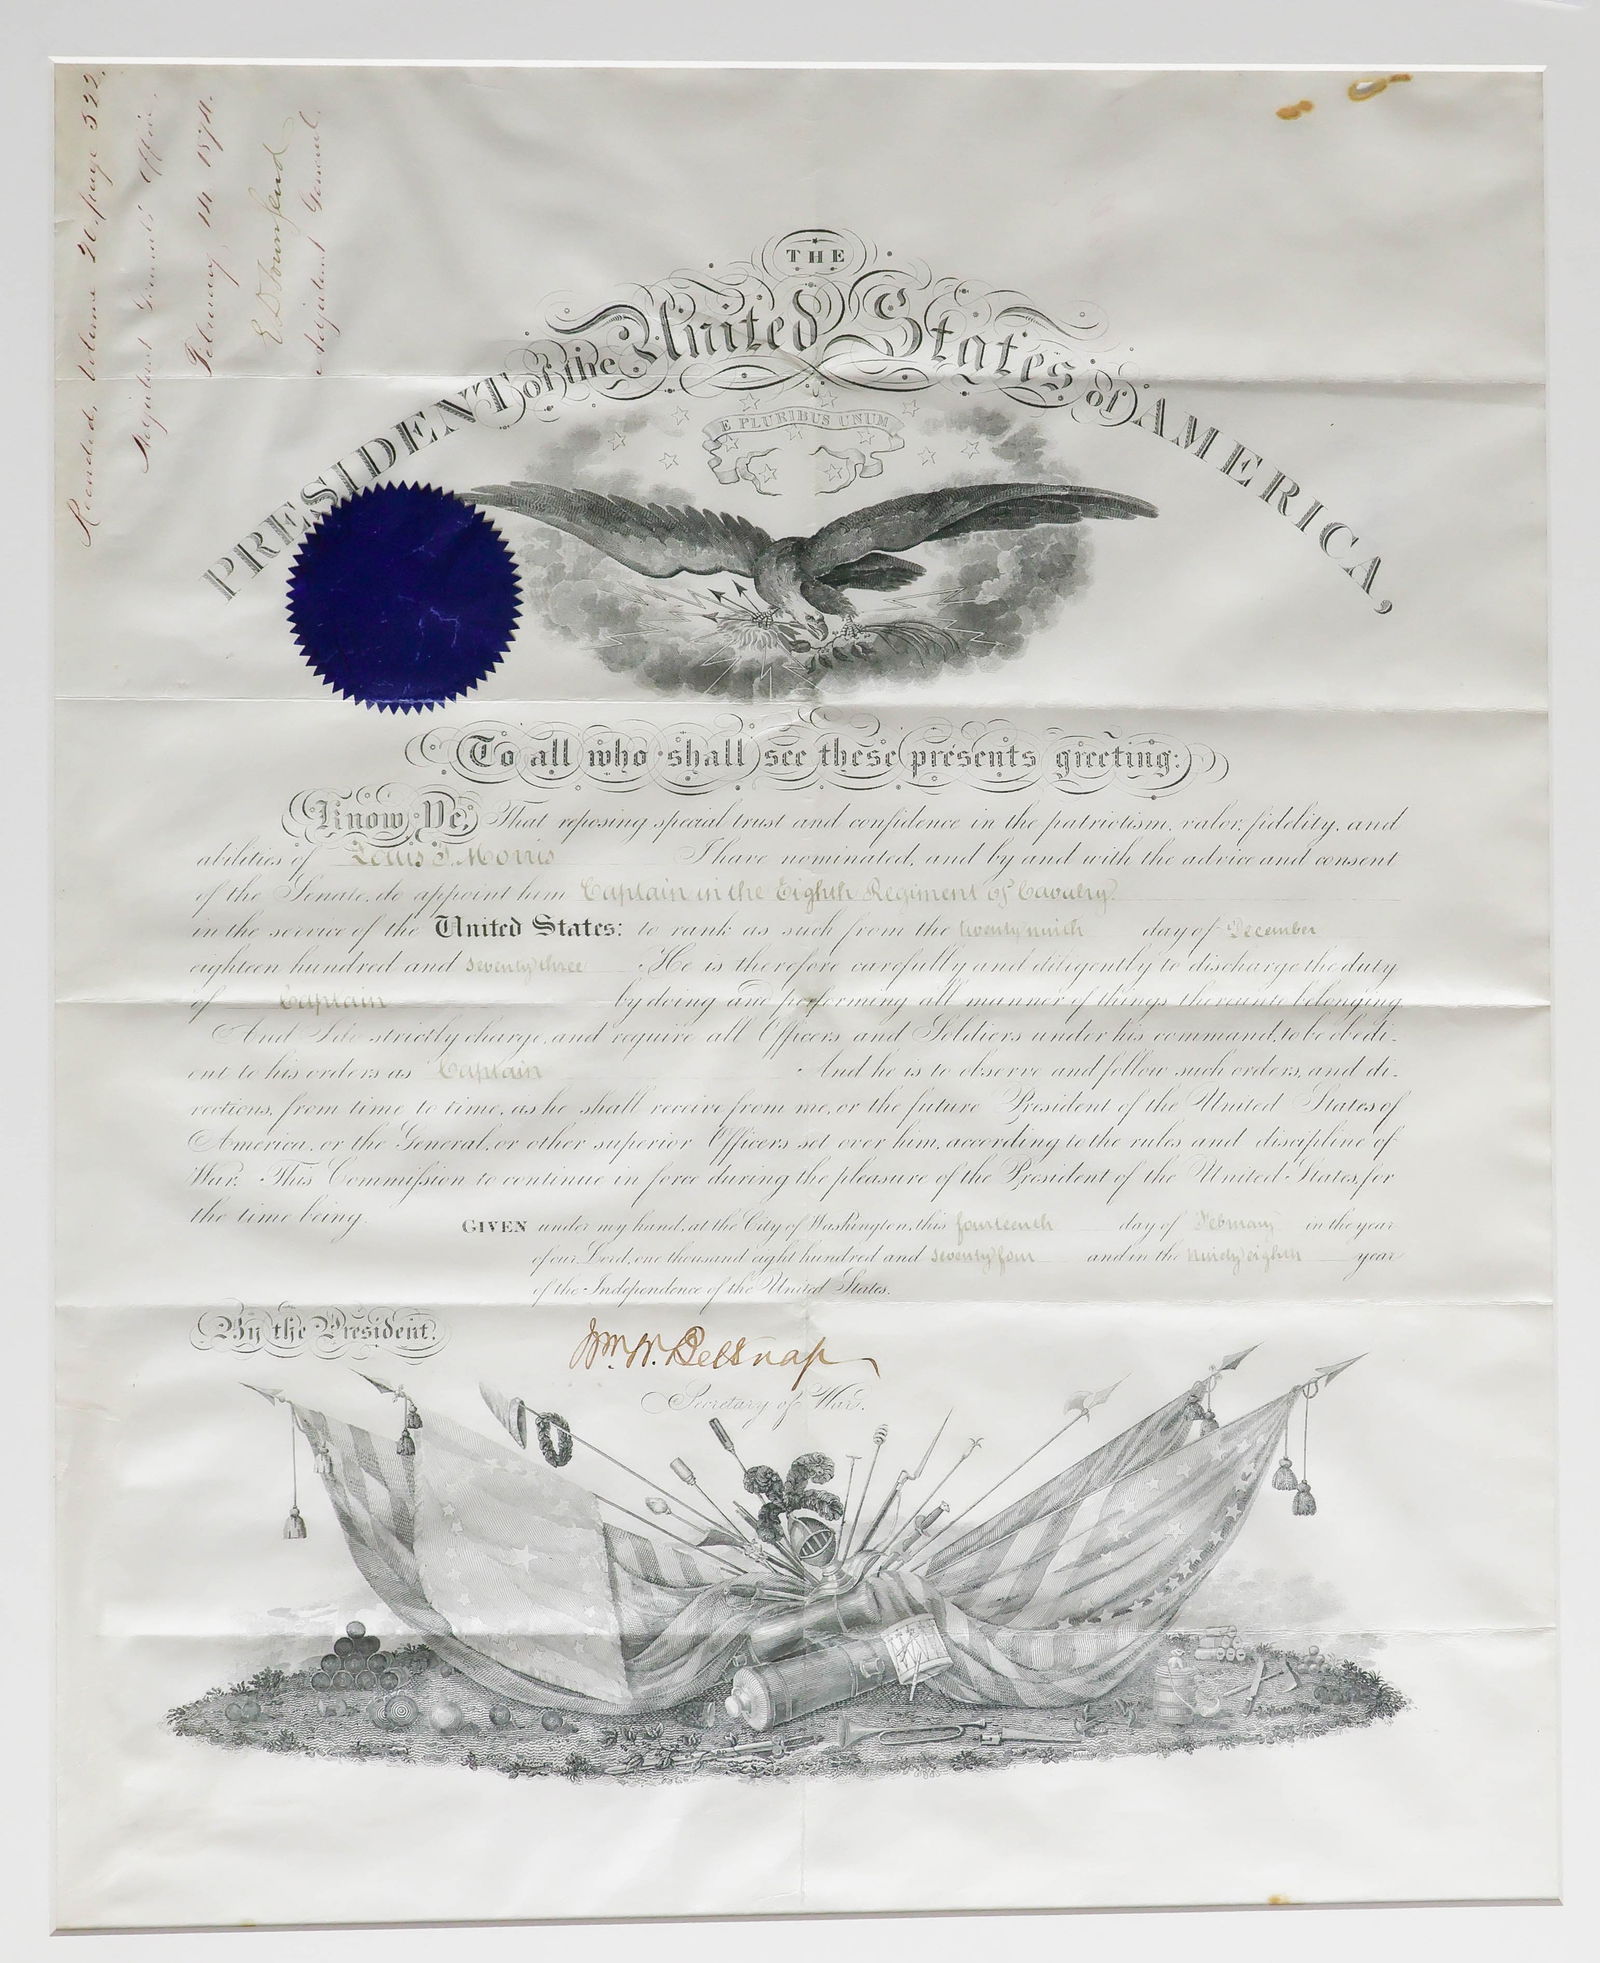 Recorded, Volume 20, page 522.
Adjutant General's Office,
February 14 1874.
E D Townsend
Adjutant General.
THE
PRESIDENT of the United States of AMERICA,
E PLURIBUS UNUM
To all who shall see these presents greeting:
Know Ye, That reposing special trust and confidence in the patriotism, valor, fidelity, and
abilities of Louis T. Morris I have nominated, and by and with the advice and consent
of the Senate, do appoint him Captain in the Eighth Regiment of Cavalry
in the service of the United States: to rank as such from the twenty ninth day of December
eighteen hundred and seventy three He is therefore carefully and diligently to discharge the duty
of Captain by doing and performing all manner of things thereunto belonging.
And I do strictly charge, and require all Officers and Soldiers under his command, to be obedi-
ent to his orders as Captain And he is to observe and follow such orders, and di-
rections, from time to time, as he shall receive from me, or the future President of the United States of
America, or the General, or other superior Officers set over him, according to the rules and discipline of
War. This Commission to continue in force during the pleasure of the President of the United States, for
the time being.
GIVEN under my hand, at the City of Washington, this fourteenth day of February in the year
of our Lord, one thousand eight hundred and seventy four and in the ninety eighth year
of the Independence of the United States.
By the President.
Wm. W. Belknap
Secretary of War.